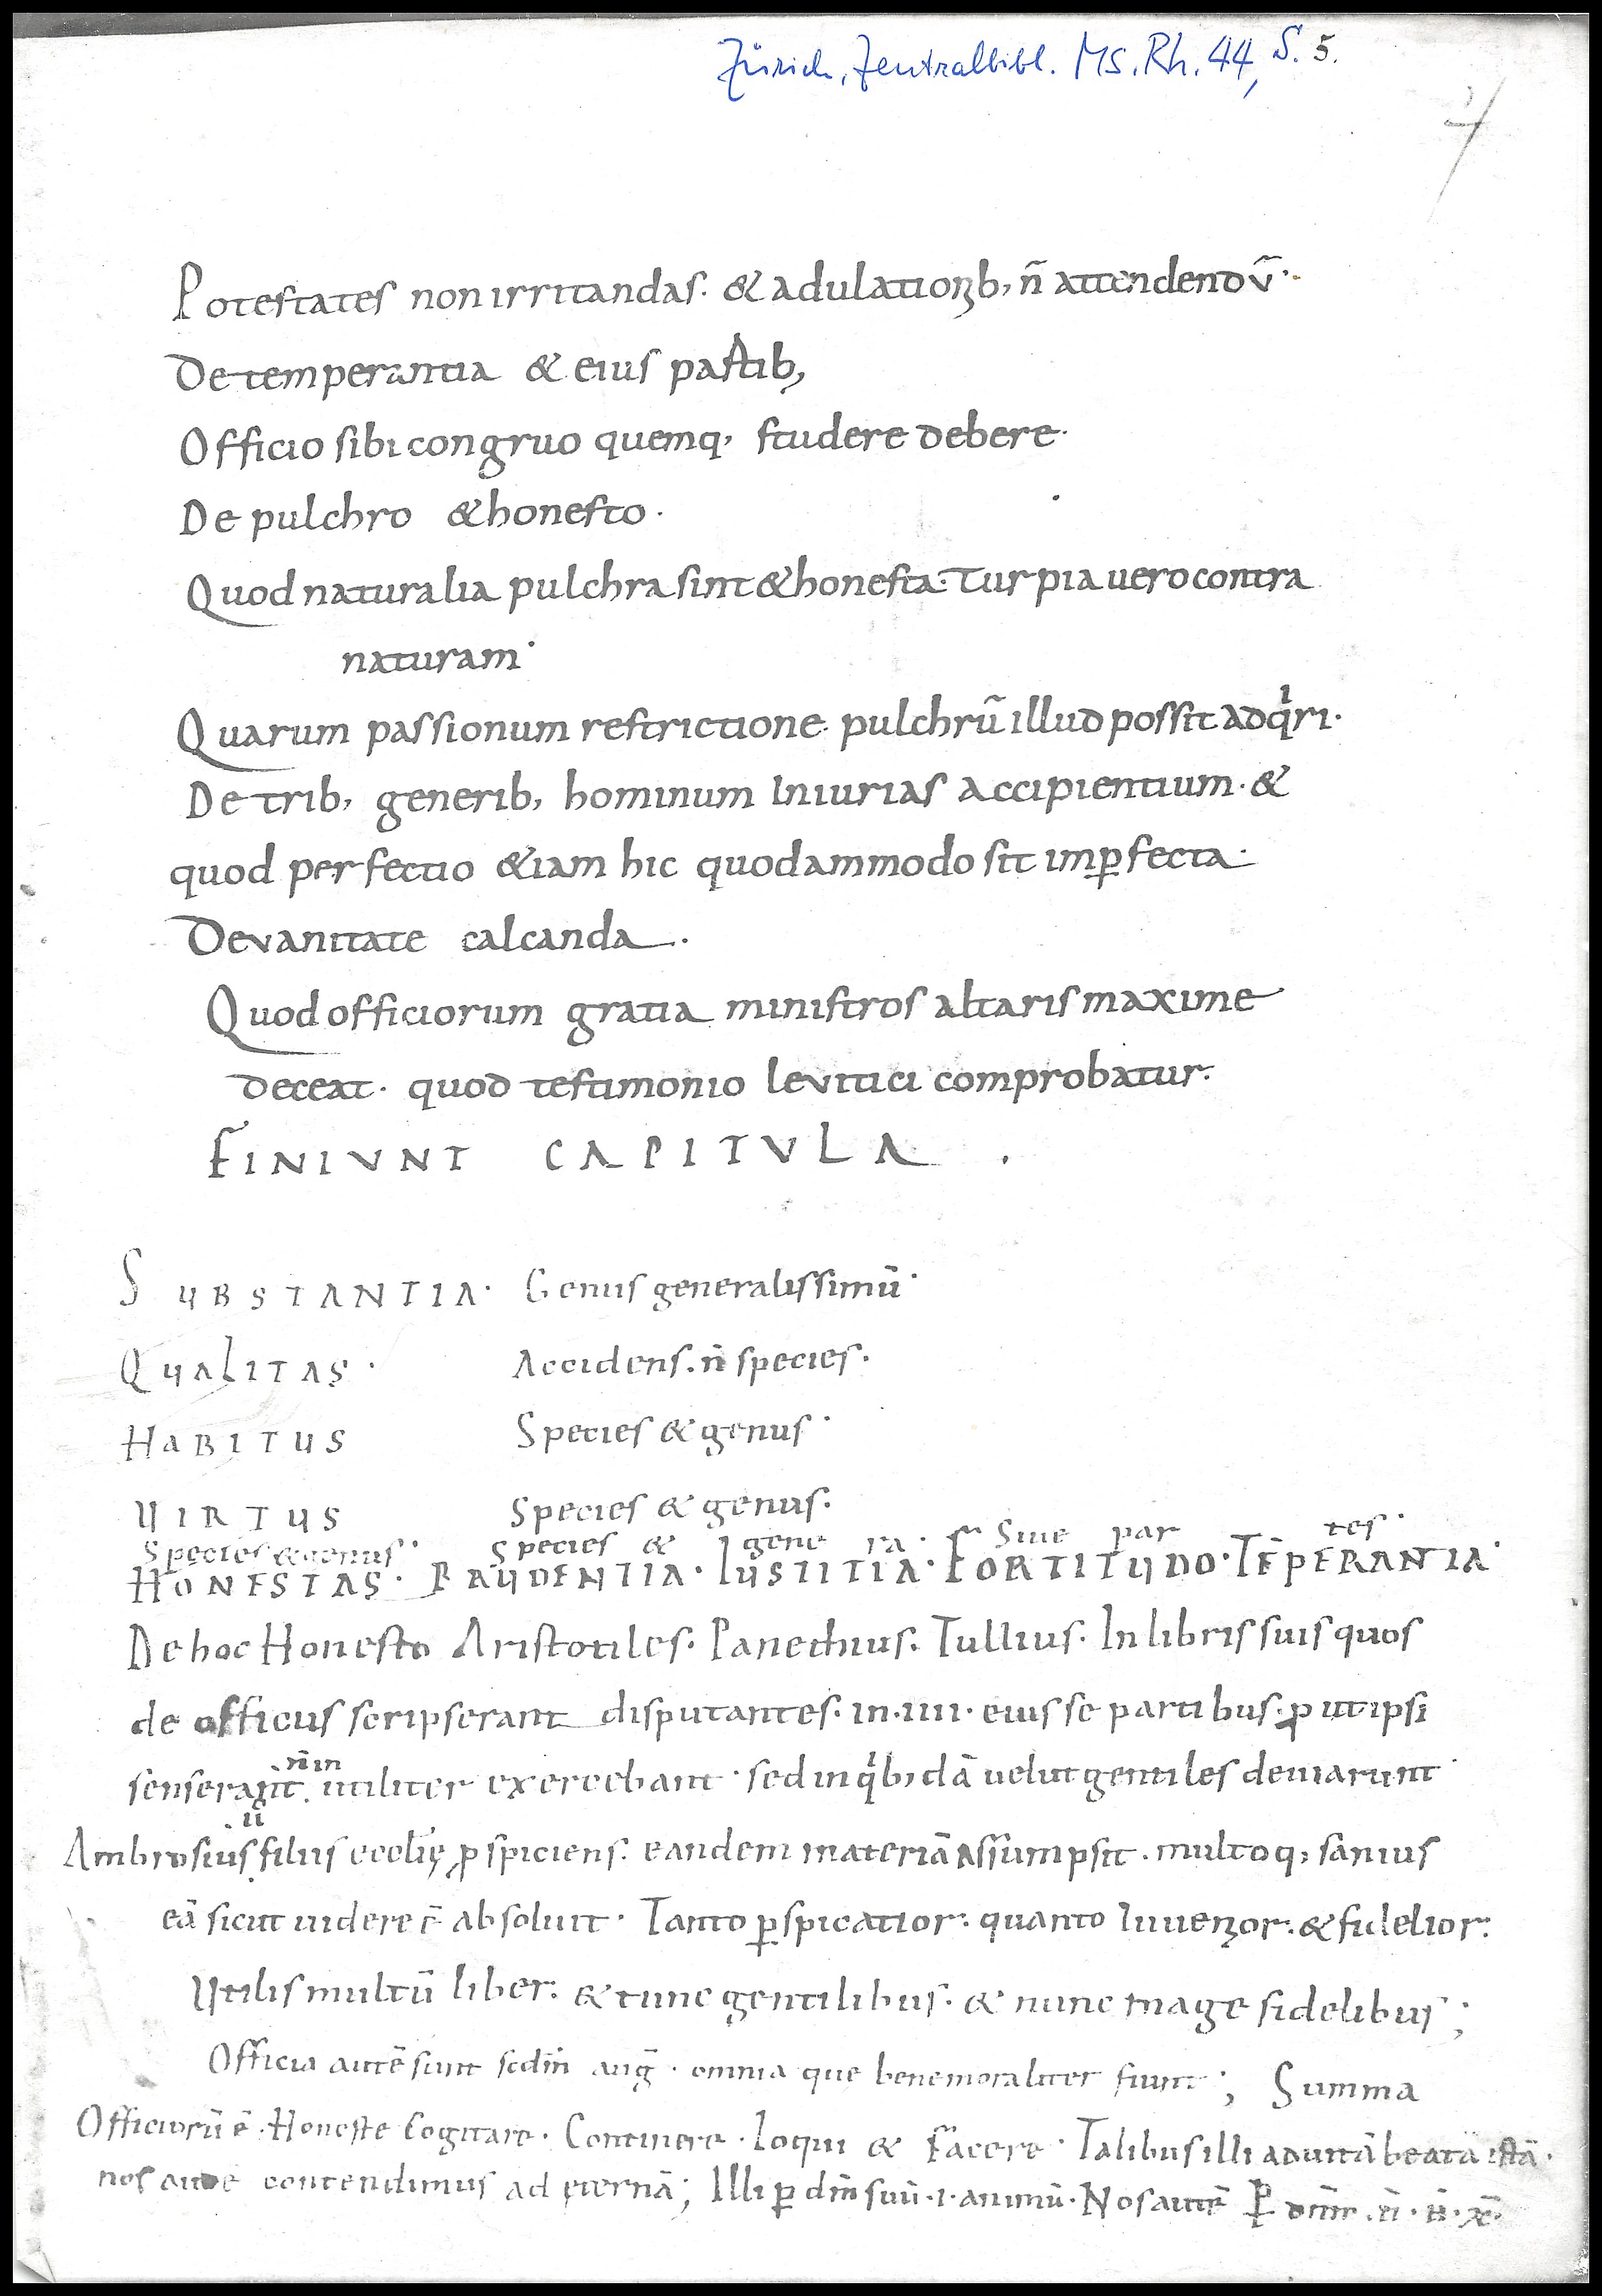 Zürich, Zentralbibl. Ms. Rh. 44, S. 5.
7
Potestates non irritandas. & adulationib; n̄ attendendū.
De temperantia & eius partib;
Officio sibi congruo quemq; studere debere.
De pulchro & honesto.
Quod naturalia pulchra sint & honesta. Turpia uero contra
naturam.
Quarum passionum restrictione. pulchrū illud possit adqiri.
De trib; generib; hominum Iniurias accipientium. &
quod perfectio &iam hic quodammodo sit imꝑfecta.
De vanitate calcanda.
Quod officiorum gratia ministros altaris maxime
deceat. quod testimonio levitici comprobatur.
FINIVNT CAPITVLA.
SUBSTANTIA. Genus generalissimū.
QUALITAS. Accidens. n̄ species.
HABITUS Species & genus.
UIRTUS Species & genus.
Species & genus. Species & genera. Siue partes.
HONESTAS. PRUDENTIA. IUSTITIA. FORTITUDO. TĒPERANTIA.
De hoc Honesto Aristotiles. Panethius. Tullius. In libris suis quos
de officiis scripserant disputantes. in .IIII. eius se partibus. ꝓut ipsi
n̄ in
senserant. utiliter exercebant. sed in qibdā uelut gentiles deuiarunt.
Ambrosius filius ecclię ꝓspiciens. eandem materiā assumpsit. multoq; sanius
eā sicut uidere ē absoluit. Tanto ꝑspicatior. quanto Iunior. & fidelior.
Utilis multū liber. & tunc gentilibus. & nunc mage fidelibus;
Officia autē sunt scdm̄ aug̅. omnia que bene moraliter fiunt; Summa
Officiorū ē. Honeste Cogitare. Continere. Loqui & Facere. Talibus illi ad uitā beatā istā.
nos autē contendimus ad ęternā; Illi ꝑ dn̄m suū .i. animū. Nos autē ꝑ dn̄m .n̄.